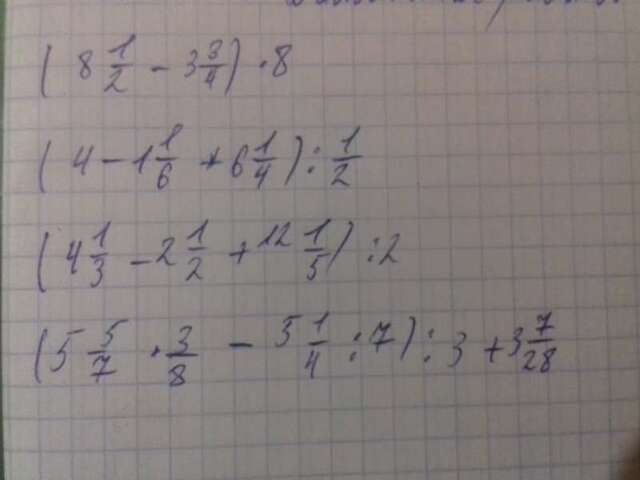 (8 1/2 - 3 3/4) · 8
(4 - 1 1/6 + 6 1/4) : 1/2
(4 1/3 - 2 1/2 + 12 1/5) : 2
(5 5/7 · 3/8 - 5 1/4 : 7) : 3 + 3 7/28